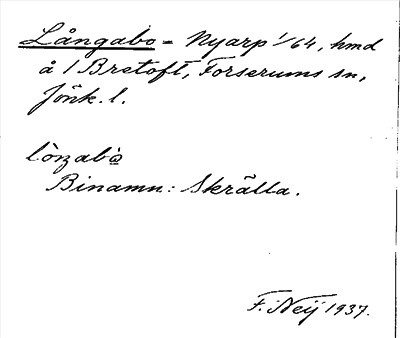 Långabo = Nyarp 1/64, hmd
å 1 Bretoft, Forserums sn,
Jönk. l.
lònzabò
Binamn: Skrälla.
F. Neij 1937.